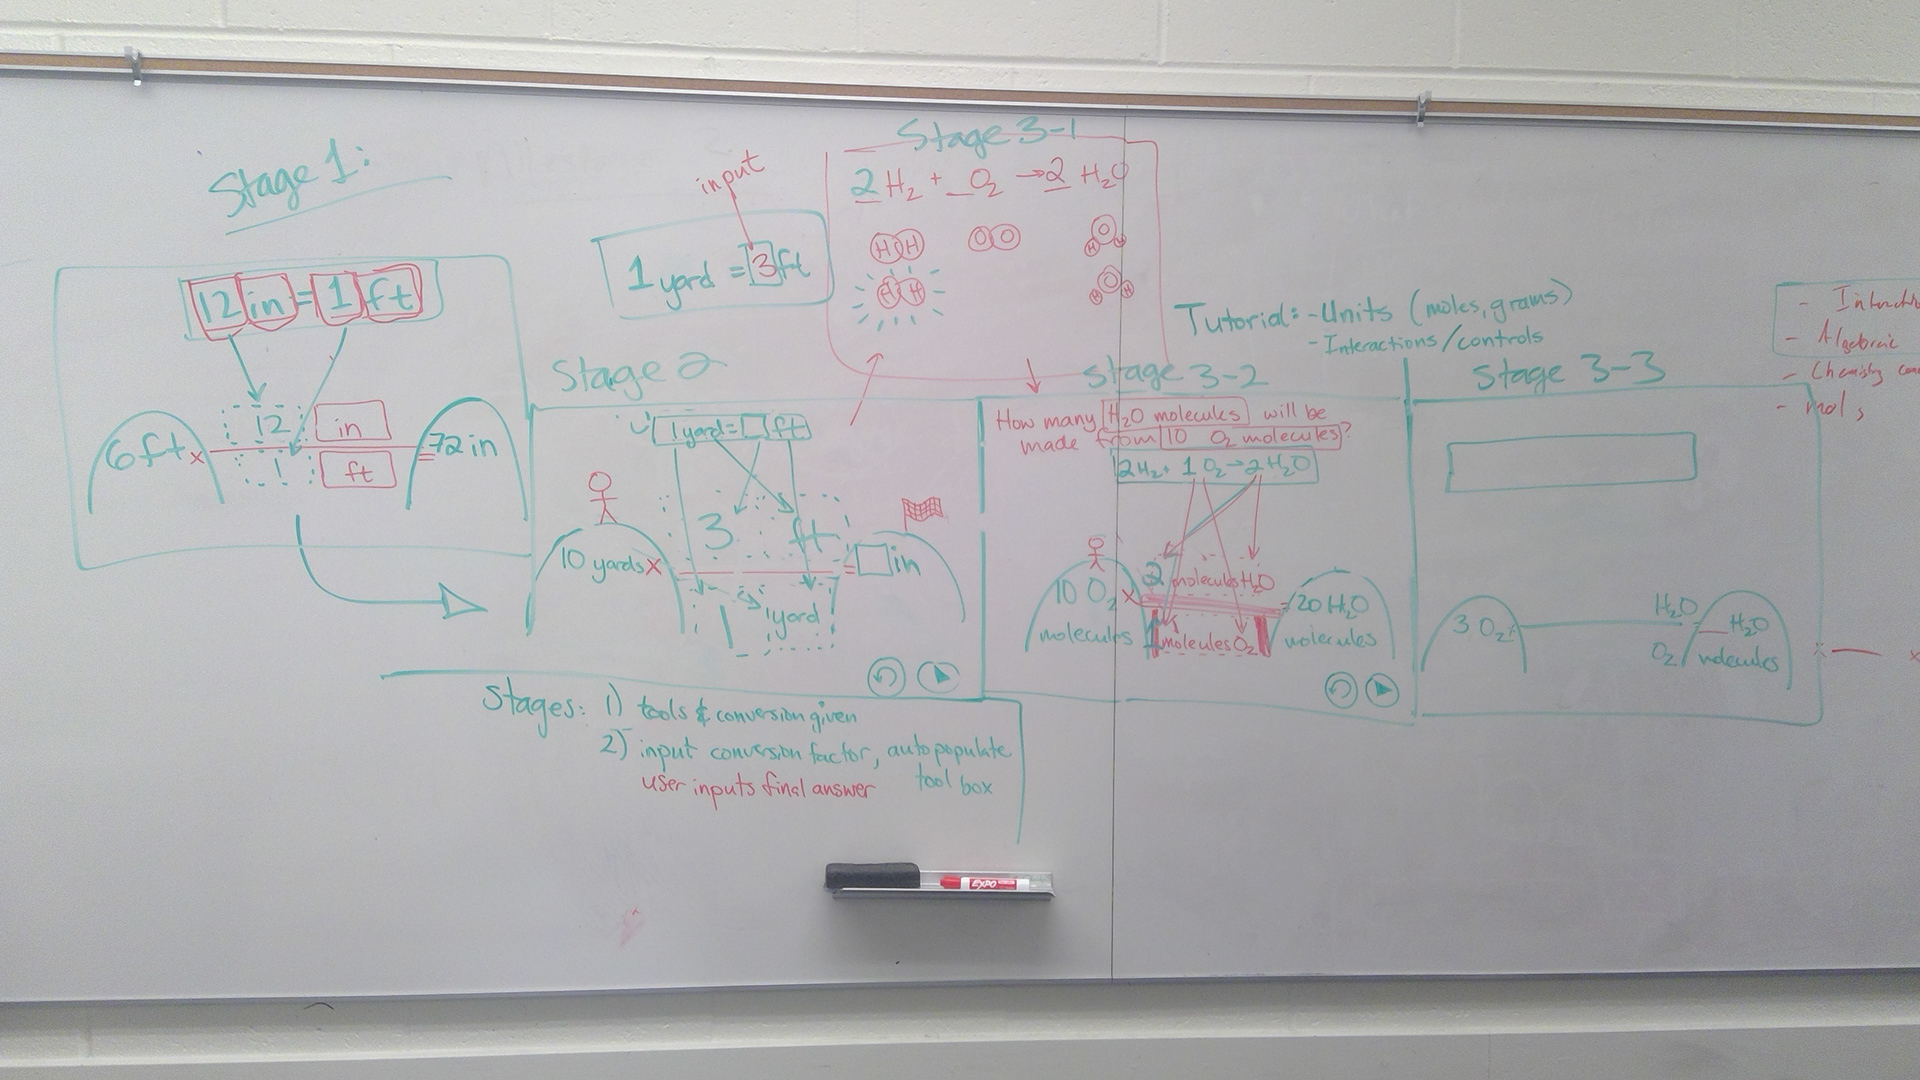 Stage 1:
12 in = 1 ft
12 in
6 ft x = 72 in
1 ft
input
1 yard = 3 ft
Stage 3-1
2 H₂ + _ O₂ → 2 H₂O
H H O O O H H
H H O H H
Stage 2
1 yard = ☐ ft
3 ft
10 yards x = ☐ in
1 yard
Tutorial: - Units (moles, grams)
- Interactions/controls
Stage 3-2
How many H₂O molecules will be
made from 10 O₂ molecules?
2H₂ + 1 O₂ → 2 H₂O
2 molecules H₂O
10 O₂ x = 20 H₂O
molecules molecules
1 molecules O₂
Stage 3-3
3 O₂ x H₂O _ H₂O
O₂ molecules
-
- Algebraic
- Chemistry
- mols
x
Stages: 1) tools & conversion given
2) input conversion factor, autopopulate
tool box
user inputs final answer
EXPO